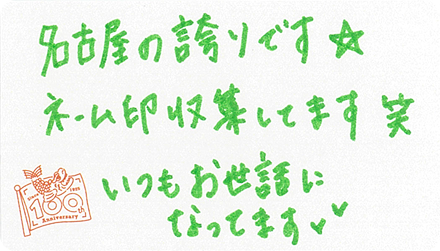 名古屋の誇りです☆
ネーム印収集してます 笑
いつもお世話に
なってます✓✓
100th
Anniversary